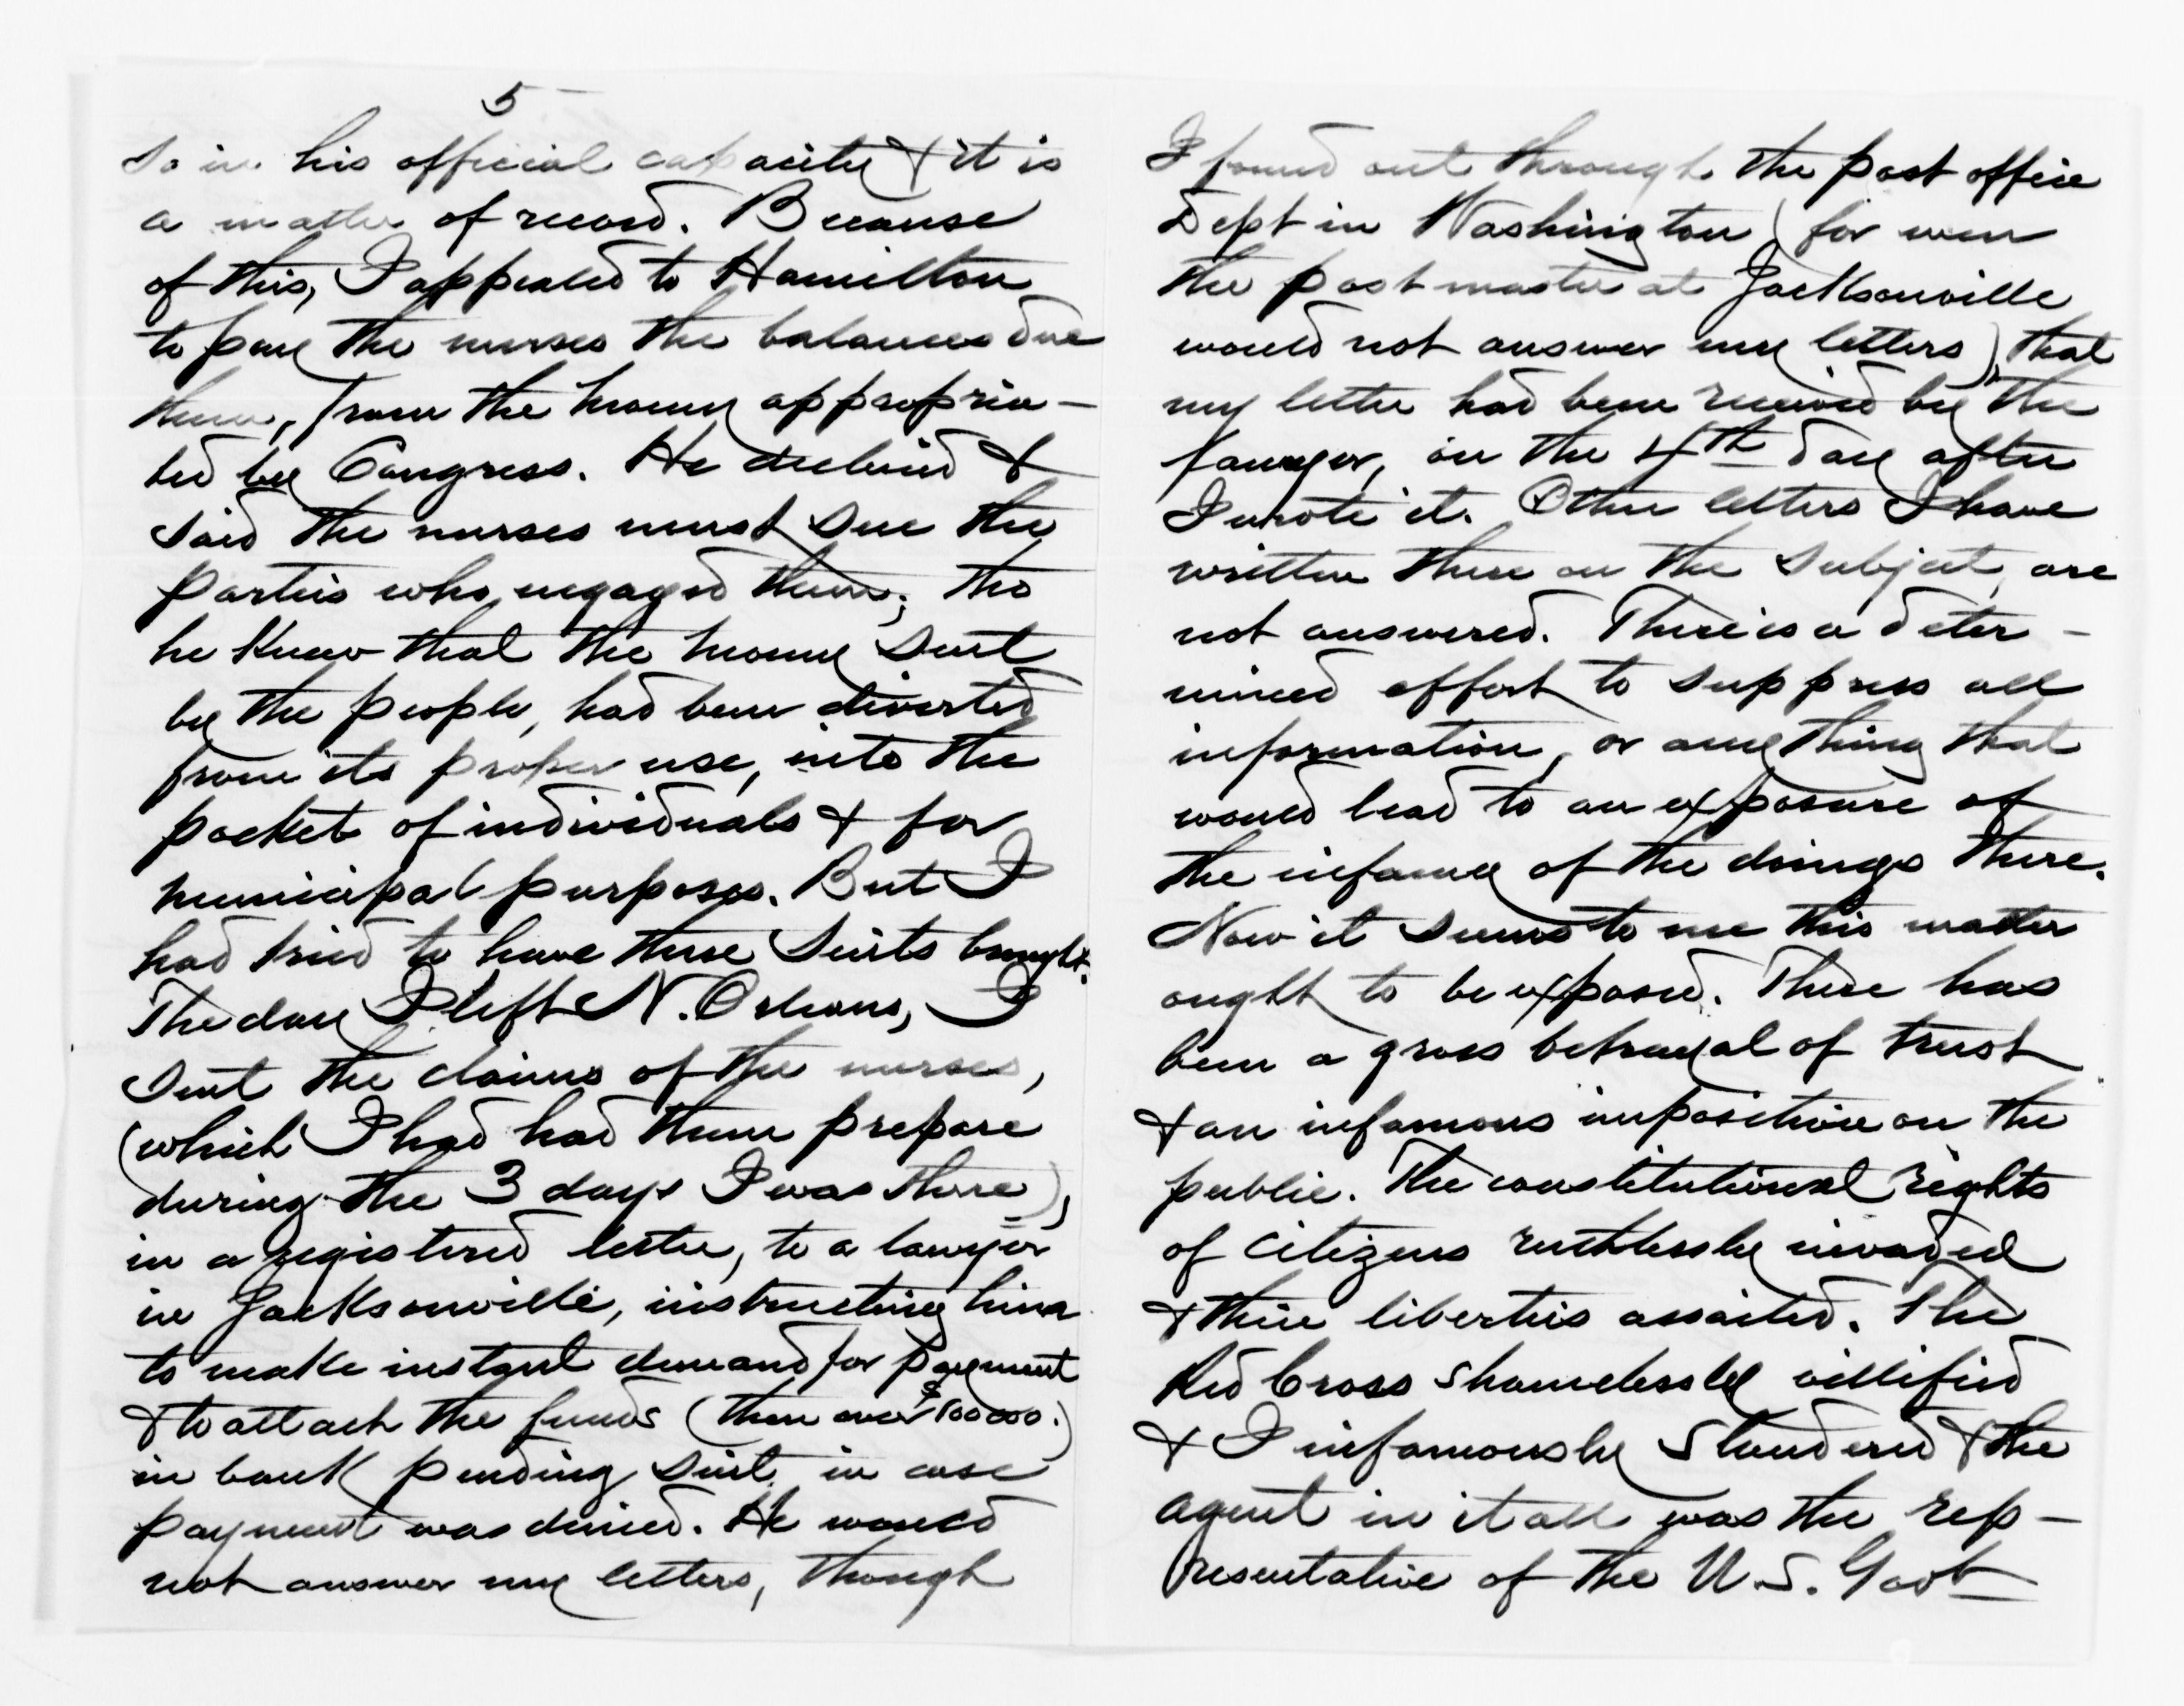 5
So in his official capacity & it is
a matter of record. Because
of this, I appealed to Hamilton
to pay the nurses the balances due
them, from the money appropria-
ted by Congress. He declined &
said the nurses must sue the
parties who engaged them; tho
he knew that the money sent
by the people, had been diverted
from its proper use, into the
pocket of individuals & for
municipal purposes. But I
had tried to have these suits brought.
The day I left N. Orleans, I
sent the claims of the nurses,
(which I had had them prepare
during the 3 days I was there),
in a registered letter, to a lawyer
in Jacksonville, instructing him
to make instant demand for payment
& to attach the funds (then over $100000.)
in bank pending suit, in case
payment was denied. He would
not answer my letters, though
I found out through the post office
Dept in Washington (for even
the postmaster at Jacksonville
would not answer my letters), that
my letter had been received by the
lawyer, on the 4th day after
I wrote it. Other letters I have
written there on the subject, are
not answered. There is a deter-
mined effort to suppress all
information, or any thing that
would lead to an exposure of
the infamy of the doings there.
Now it seems to me this matter
ought to be exposed. There has
been a gross betrayal of trust
& an infamous imposition on the
public. The constitutional rights
of citizens ruthlessly invaded
& their liberties assailed. The
Red Cross shamelessly villified
& I infamously slandered & the
agent in it all was the rep-
resentative of the U.S. Govt